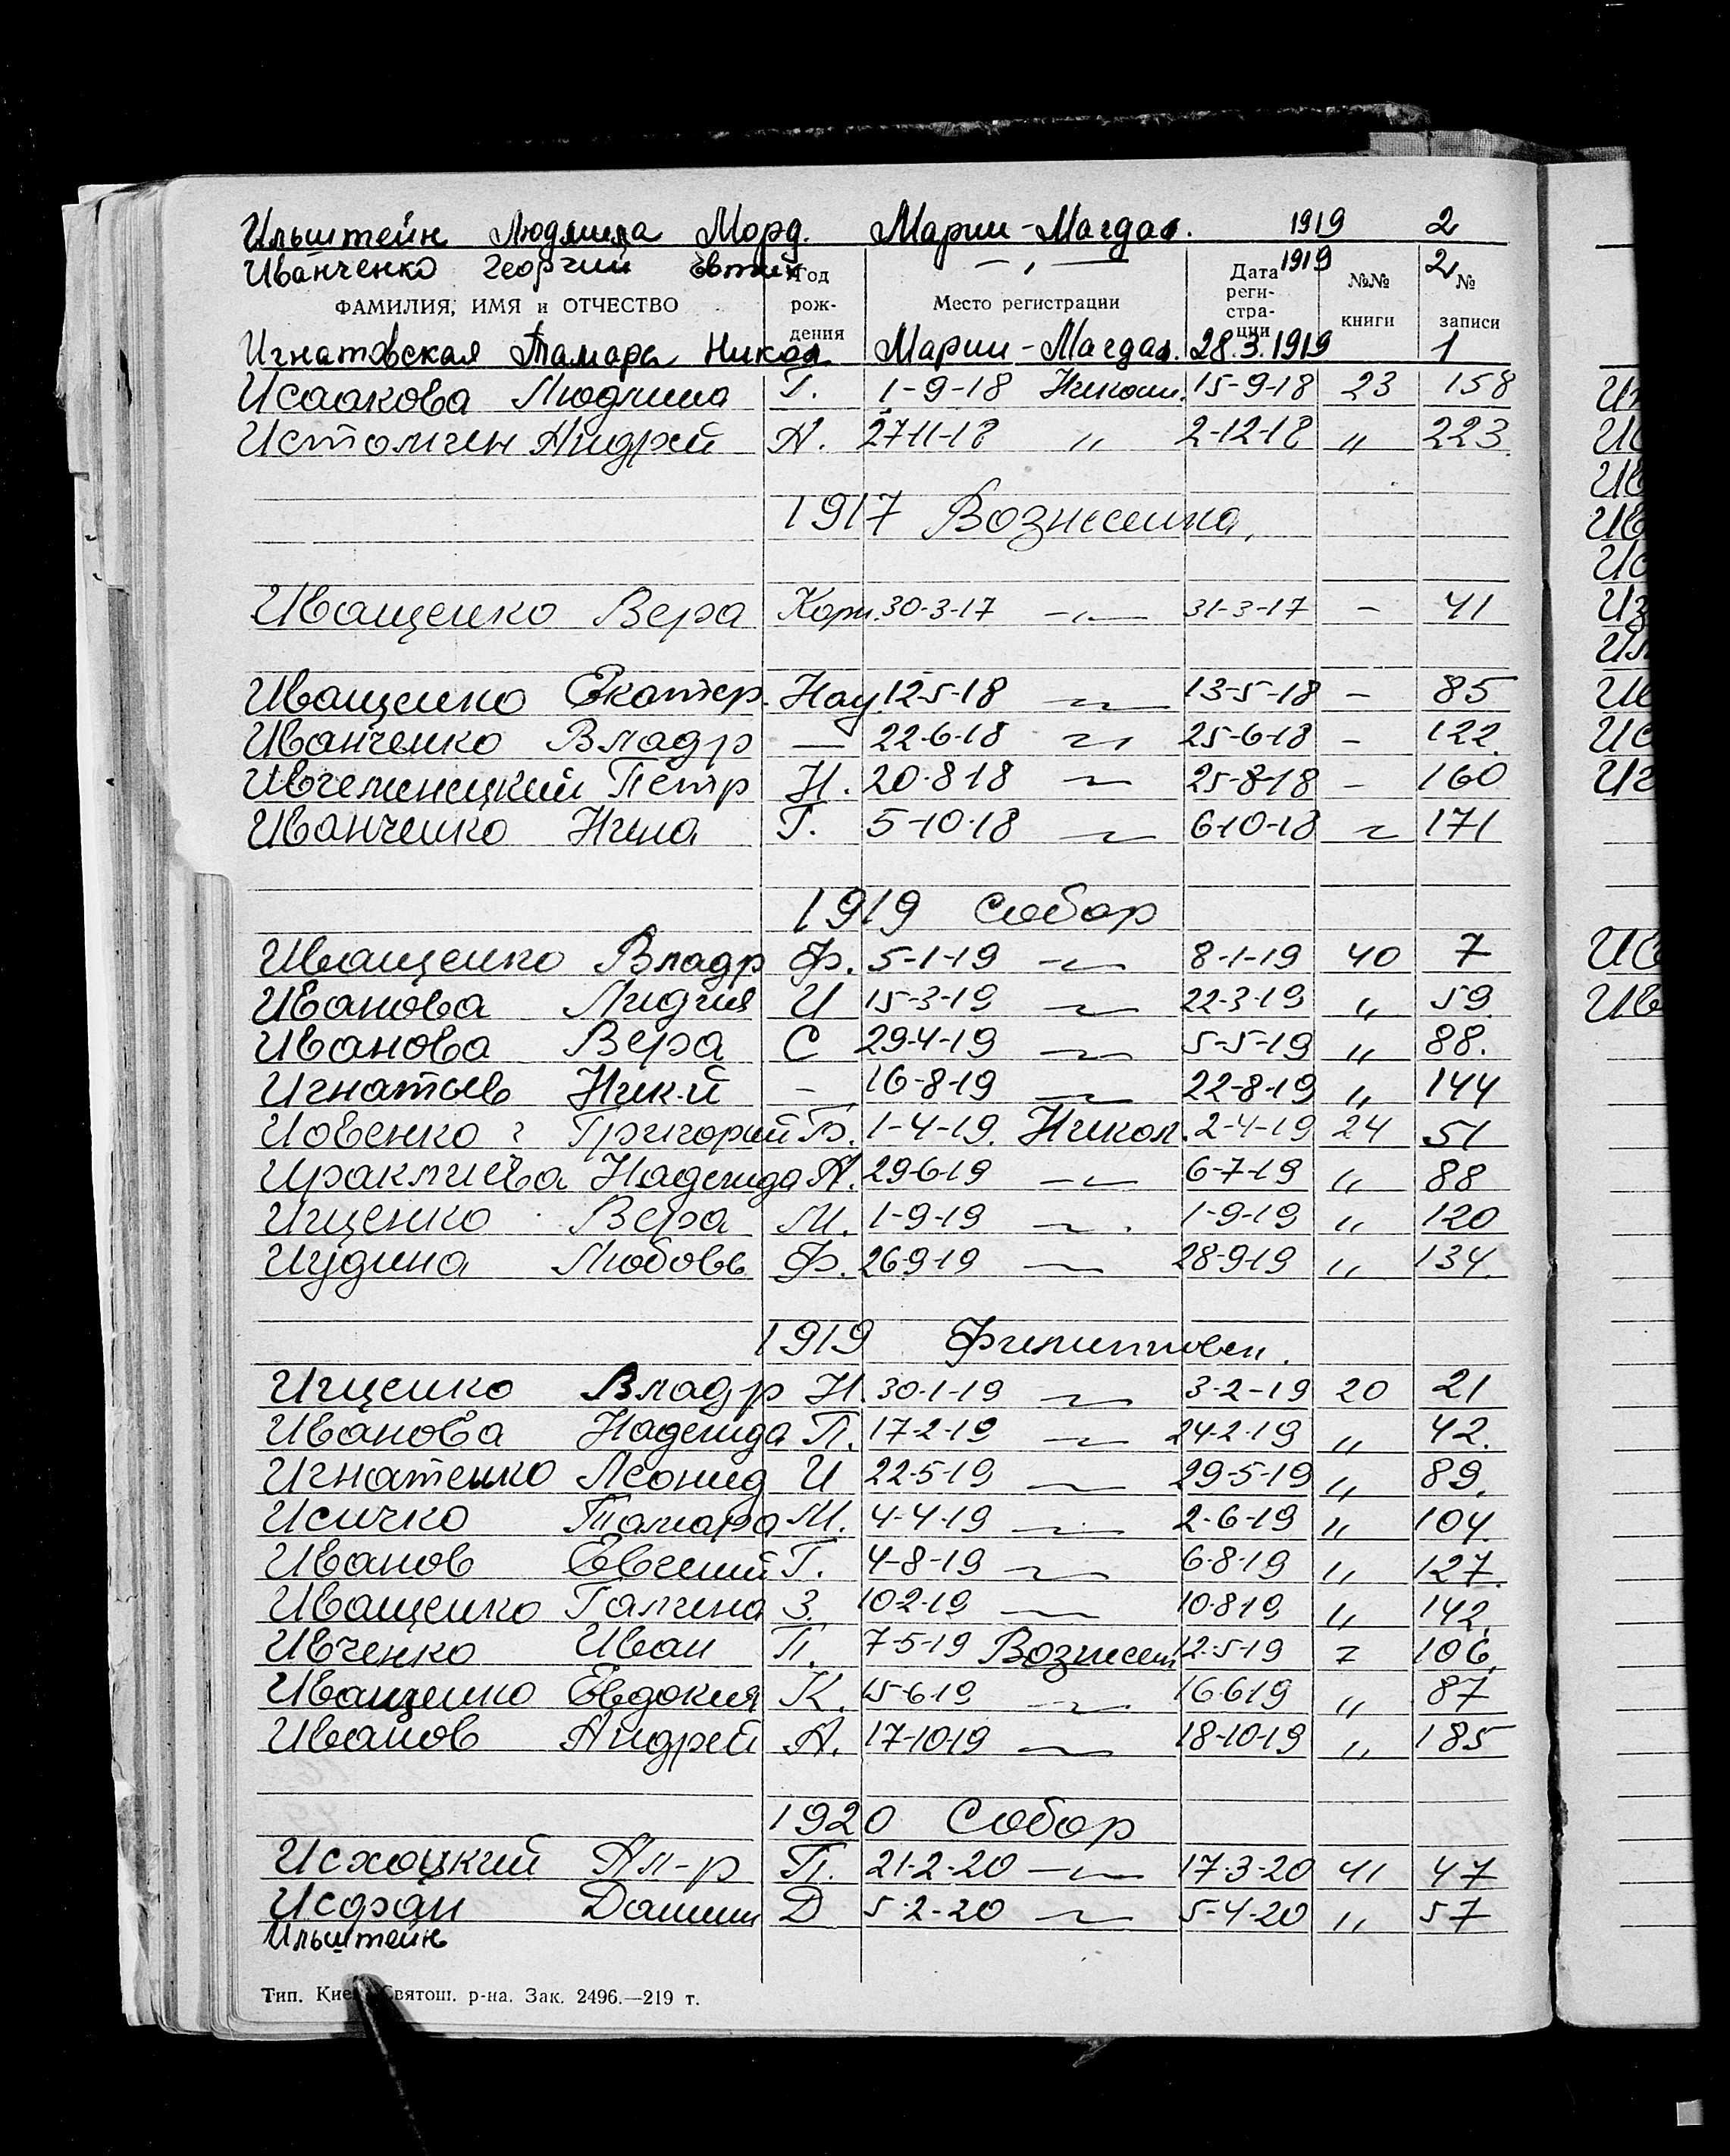 Ильштейн Людмила Морд. Марии-Магдал. 1919 2
Иванченко Георгий Евтих — " — 1919 2
ФАМИЛИЯ, ИМЯ и ОТЧЕСТВО Год рождения Место регистрации Дата регистрации №№ книги № записи
Игнатовская Тамара Никол Марии-Магдал. 28.3.1919 1
Исаакова Людмила Г. 1-9-18 Никол. 15-9-18 23 158
Истомин Андрей А. 27-11-18 " 2-12-18 " 223
1917 Вознесенка
Иващенко Вера Корн. 30-3-17 —"— 31-3-17 - 41
Иващенко Екатер. Нау. 12-5-18 —"— 13-5-18 - 85
Иванченко Владр — 22-6-18 —"— 25-6-18 - 122
Петр Н. 20-8-18 —"— 25-8-18 - 160
Иванченко Нина Г. 5-10-18 —"— 6-10-18 —"— 171
1919 Собор
Иващенко Владр Ф. 5-1-19 —"— 8-1-19 40 7
Иванова Лидия И 15-3-19 —"— 22-3-19 " 59
Иванова Вера С 29-4-19 —"— 5-5-19 " 88.
Игнатьев Ник-й - 16-8-19 —"— 22-8-19 " 144
Иовенко Григорий Б. 1-4-19. Никол. 2-4-19 24 51
Ираклиева Надежда А. 29-6-19 —"— 6-7-19 " 88
Ищенко Вера М. 1-9-19 —"— 1-9-19 " 120
Иудина Любовь Ф. 26-9-19 —"— 28-9-19 " 134
1919 Филиппов.
Ищенко Владр Н. 30-1-19 —"— 3-2-19 20 21
Иванова Надежда П. 17-2-19 —"— 24-2-19 " 42.
Игнатенко Леонид И 22-5-19 —"— 29-5-19 " 89.
Исичко Тамара М. 4-4-19 —"— 2-6-19 " 104.
Иванов Евгений Г. 4-8-19 —"— 6-8-19 " 127.
Иващенко Галина З. 10-2-19 —"— 10-8-19 " 142.
Ивченко Иван П. 7-5-19 Вознесен 12-5-19 7 106.
Иващенко Евдокия К. 15-6-19 —"— 16-6-19 " 87
Иванов Андрей А. 17-10-19 —"— 18-10-19 " 185
1920 Собор
Исхоцкий Ал-р П. 21-2-20 —"— 17-3-20 41 47
Д 5-2-20 —"— 5-4-20 " 57
Ильштейн
Тип. Святош. р-на. Зак. 2496.—219 т.